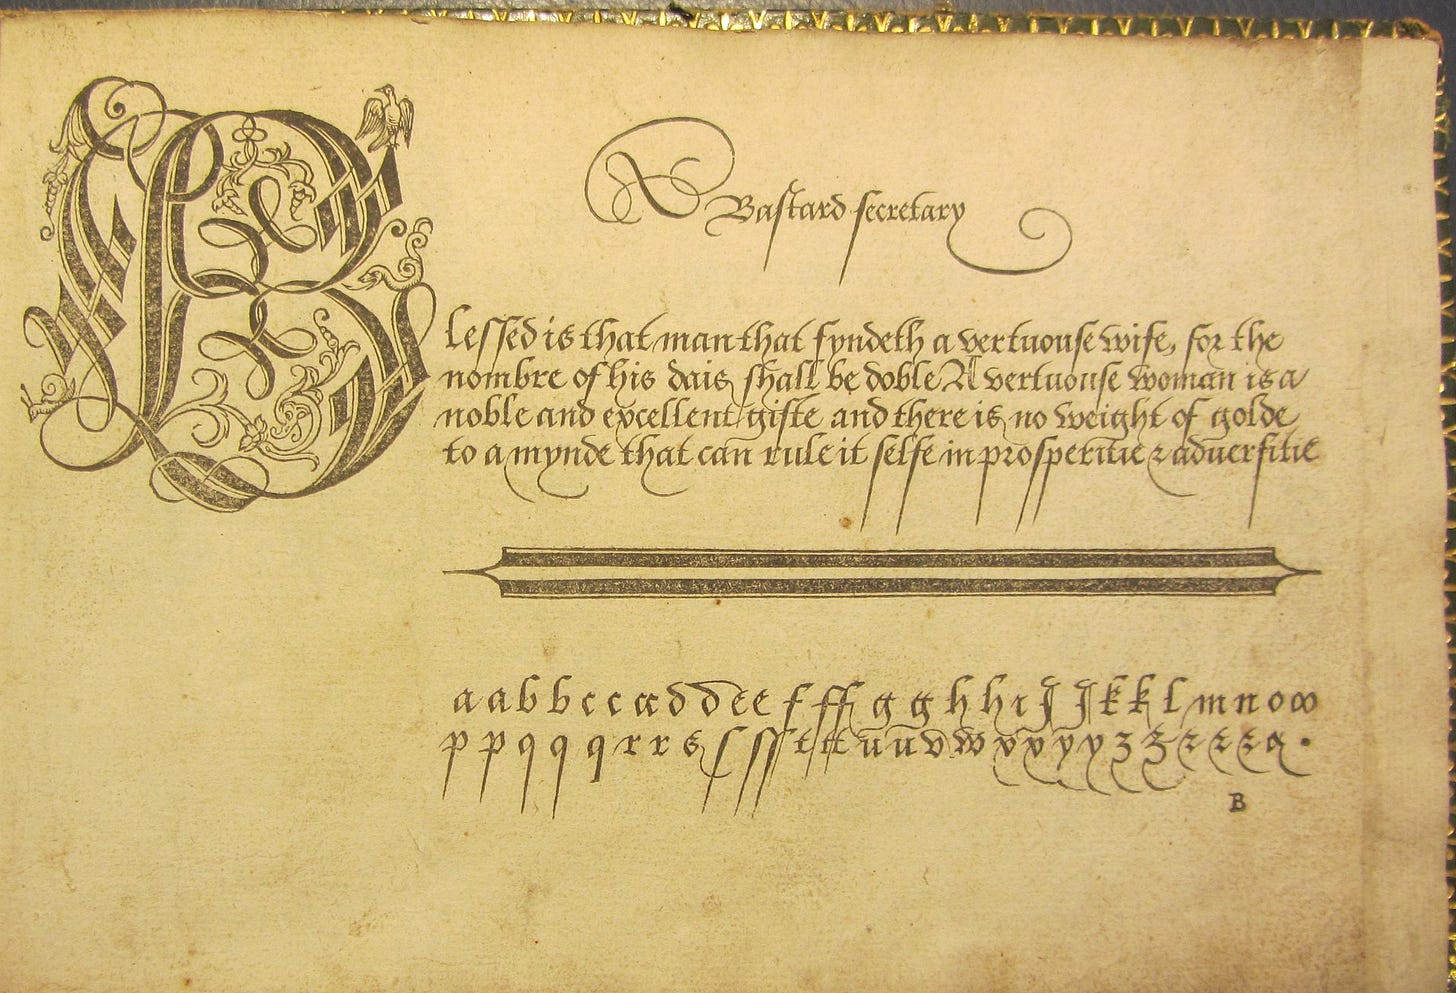 A Bastard secretary
Blessed is that man that fyndeth a vertuouse wife, for the
nombre of his dais shall be doble A vertuouse woman is a
noble and excellent gifte and there is no weight of golde
to a mynde that can rule it selfe in prosperitie & aduersitie
a a b b c c æ d d e e f ff g g h h i J J k k l m n o w
p p q q q r r s ſ ſſ t tt u u v w x x y y z z & & & &.
B